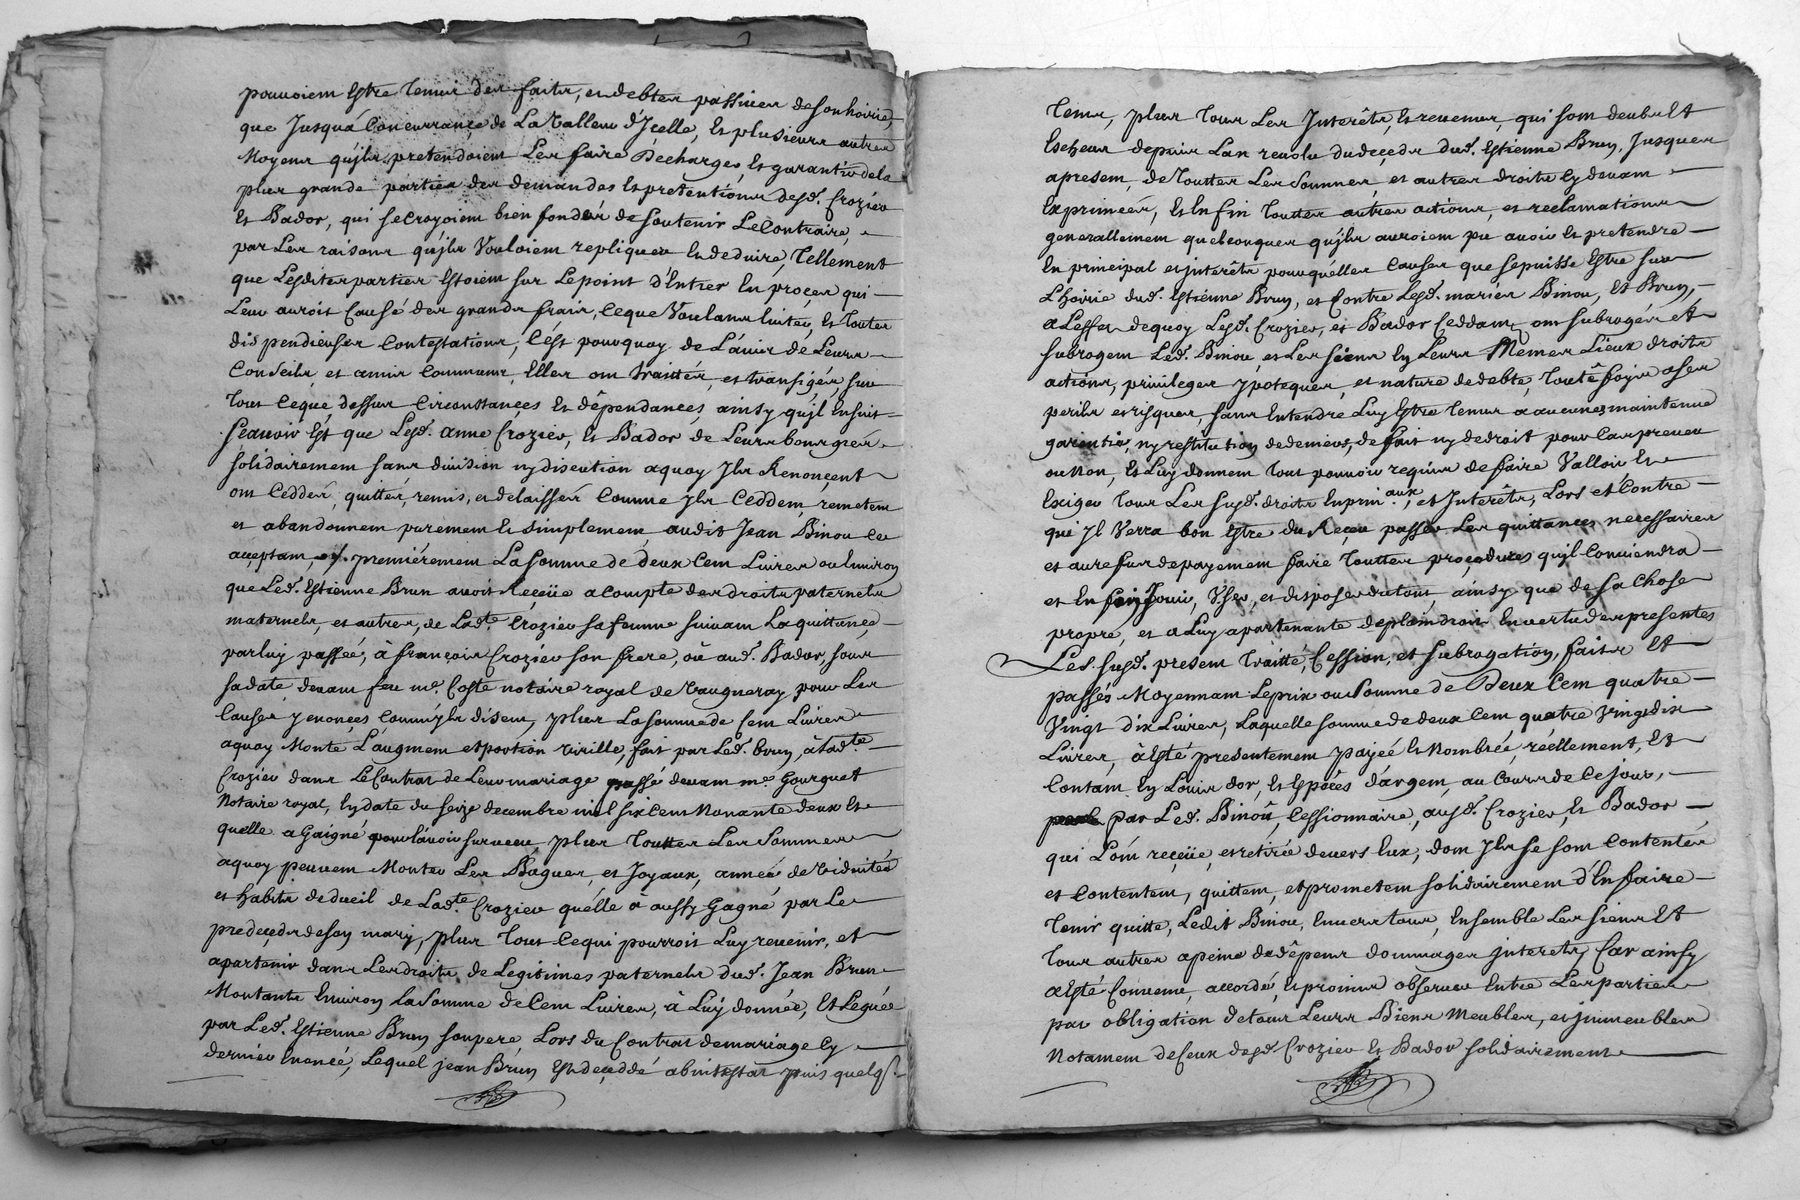 pouvoient Estre Tenus des faits, et debtes passives de son hoirie,
que Jusqu'à Concurrance de La Valleur d'Jcelle, Et plusieurs autres
Moyens qu'jls pretendoient Les faire Décharger, Et garantir de la
plus grande partiea des demandes Et pretentions desd. Crozier
Et Bador, qui se Croyoient bien fondés de soutenir Le Contraire,
par Les raisons qu'jls Vouloient repliquer Et deduire, Tellement
que Lesdites parties Estoient sur Le point d'Entrer En procez qui
Leur auroit Causé des grands frais, Ce que Voulans Eviter, Et Toutes
dispendieuses Contestations, C'est pourquoy de L'avis de Leurs
Conseils, et amis Communs, Elles ont traittés, et transigés, sur
Tout Ce que dessus Circonstances Et dépendances, ainsy qu'jl Ensuit
Scavoir Est que Lesd. anne Crozier, Et Bador de Leurs bon grés
solidairement sans division ny discution a quoy Jls Renonçent
ont Ceddés, quittés, remis, et delaissés Comme Jls Ceddent, remetent
et abandonnent purement Et simplement, audit Jean Binou Ce
acceptant, premiérement La somme de deux Cent Livres ou Environ
que Led. Estienne Brun avoit Reçeüe a compte des droits paternels
maternels, et autres, de Lad.te Crozier sa femme suivant La quittance
par luy passée, à françois Crozier son frere, où aud. Bador, sous
sa date, devant feu me. Coste notaire royal de Vaugneray pour Les
Causes y enonçées Comm'jls disent, plus La somme de Cent Livres
a quoy Monte L'augment et portion virille, fait par Led. brun, à Lad.te
Crozier dans Le Contrat de Leur mariage passé devant me. Gourguet
Notaire royal, En date du seize decembre mil six Cent Nonante deux Et
quelle a Gaigné pour L'avoir surveccu, plus Toutes Les Sommes
a quoy peuvent Monter Les Bagues, et Joyaux, année de Viduités
et habits de dueil de Lad.te Crozier quélle à aussy Gagné par Le
predeçeds de son mary, plus Tout Ce qui pourroit Luy revenir, et
apartenir dans Les droits, de Legitimes paternels dud. Jean Brun
Montants Environ La somme de Cent Livres, à Luy donnée, Et Leguée
par Led. Estienne Brun son pere, Lors du Contrat de mariage Cy
dernier Enoncé, Lequel jean Brun Est deçeddé abintestat puis quelq.
Temps, plus Tous Les Interêts, Et revenus, qui sont deubs Et
Escheus depuis Lan revolu du deçeds dud. Estienne Brun, Jusques
apresent, de Touttes Les Sommes, et autres droits Cy devant
Exprimées, Et Enfin Touttes autres actions, et reclamations
generallement quelconques qu'jls auroient pu avoir Et pretendre
En principal et jnterêts pour quélles Causes que se puisse Estre sur
L'hoirie dud. Estienne Brun, et Contre Lesd. mariés Binou, Et Brun,
a L'effet de quoy Lesd. Crozier, et Bador Ceddants, ont subrogés et
subrogent Led. Binou et Les siens En Leurs Memes Lieux droits
actions, privileges ypoteques, et nature de debte, Toutéfoys a ses
perils et risques, sans Entendre Luy Estre Tenus a aucunes maintenue
garentie, ny restitution de deniers, de fait ny de droit pour Cas preveu
ou Non, Et Luy donnent tout pouvoir requis de faire Valloir, Et
Exiger Tous Les susd. droits En prin.aux, et Interêts, Lors et Contre
qui Jl Verra bon Estre du Reçeu passer Les quittances necessaires
et au refus de payement faire Touttes proçedures qu'jl Conviendra
et En Jouir, User, et disposer du tout, ainsy que de sa Chose
propre, et a Luy apartenante de plain droit En vertu des presentes
Les susd. present Traitté, Cession, et subrogation, faits Et
passés Moyennant Le prix ou Somme de Deux Cent quatre
Vingt dix Livres, Laquelle somme de deux Cent quatre Vingt dix
Livres, à Esté presentement payéé Et Nombréé, réellement, Et
Contant En Louis dor, Et Espéces d'argent, au Cours de Ce jour,
par Led. Binoû, Cessionnaire, ausd. Crozier, Et Bador
qui L'ont reçeüe, et retirée devers Eux, dont Jls se sont Contentés
et Contentent, quittent, et prometent solidairement d'En faire
Tenir quitte, Ledit Binou, Envers tous, Ensemble Les siens Et
Tous autres a peine de dépens dommages Jnterets, Car ainsy
a Esté Convenu, accordé, Et promis observer Entre Les parties
par obligation de tous Leurs Biens Meubles, et jmmeubles
Notament de Ceux desd. Crozier Et Bador solidairement